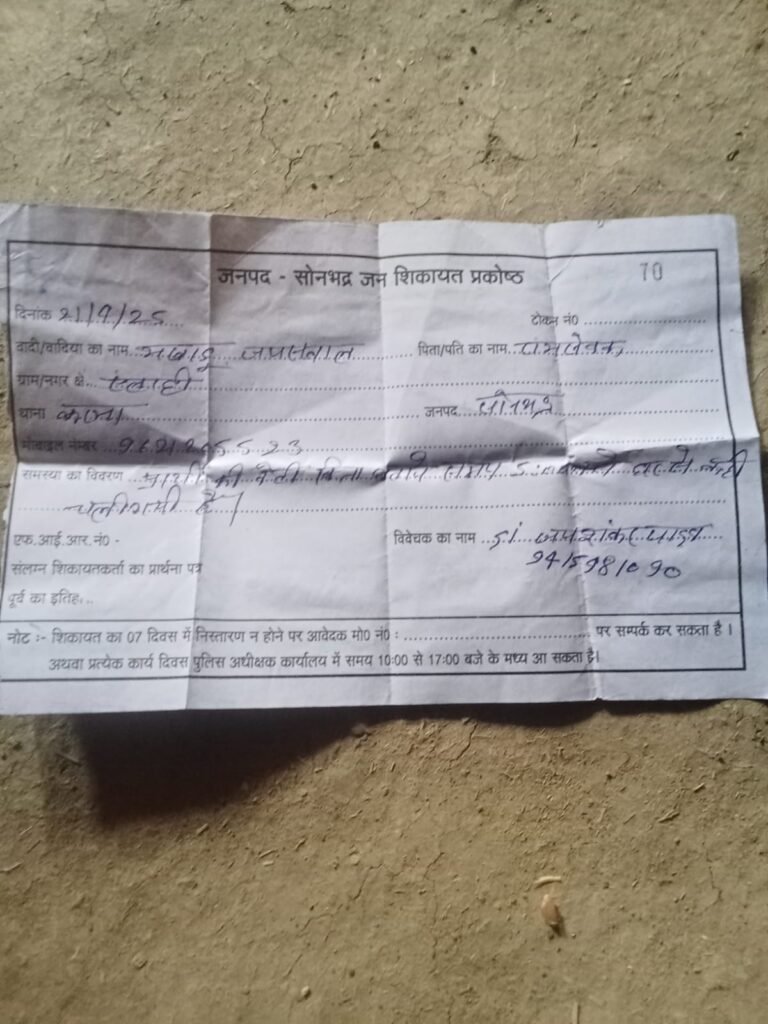 जनपद - सोनभद्र जन शिकायत प्रकोष्ठ 70
दिनांक 21/9/25
टोकन नं0
वादी/वादिया का नाम जायसवाल पिता/पति का नाम रामसेवक
ग्राम/नगर क्षे.
थाना जनपद सोनभद्र
मोबाइल नम्बर
समस्या का विवरण की बेटी बिना बताये समय घर से कही
चली गयी है।
एफ.आई.आर.नं0 - विवेचक का नाम जयशंकर यादव
9415981090
संलग्न शिकायतकर्ता का प्रार्थना पत्र
पूर्व का इतिह...
नोट :- शिकायत का 07 दिवस में निस्तारण न होने पर आवेदक मो0 नं0 : पर सम्पर्क कर सकता है।
अथवा प्रत्येक कार्य दिवस पुलिस अधीक्षक कार्यालय में समय 10:00 से 17:00 बजे के मध्य आ सकता है।